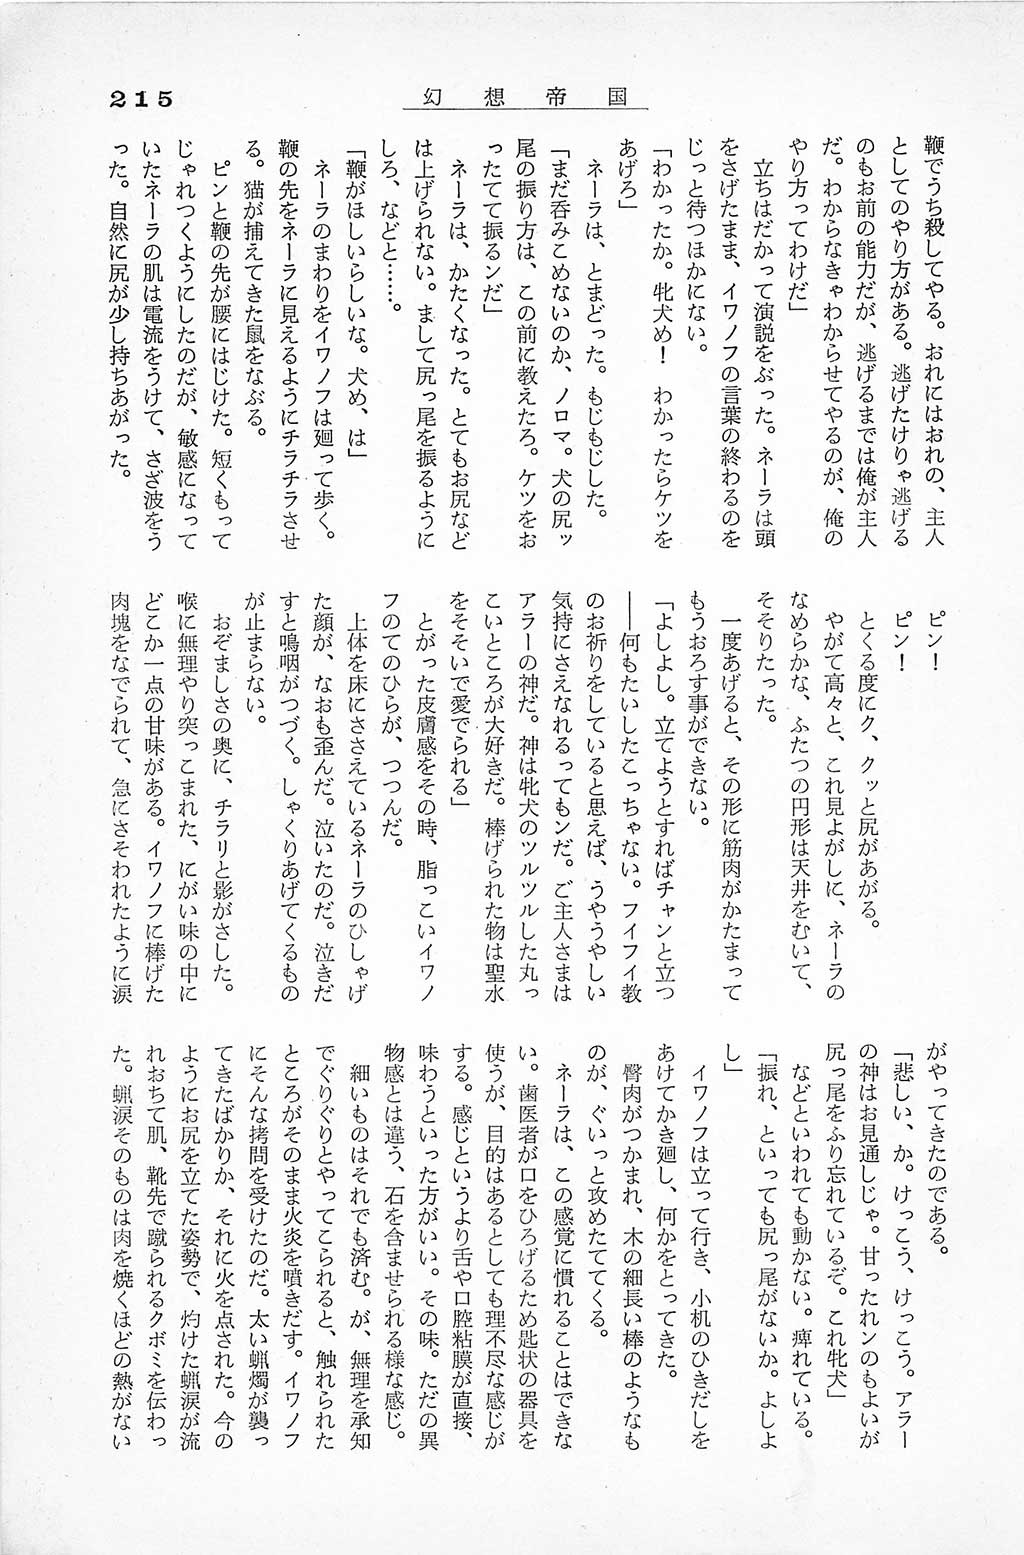 215
幻想帝国
鞭でうち殺してやる。おれにはおれの、主人
としてのやり方がある。逃げたけりゃ逃げる
のもお前の能力だが、逃げるまでは俺が主人
だ。わからなきゃわからせてやるのが、俺の
やり方ってわけだ」
立ちはだかって演説をぶった。ネーラは頭
をさげたまま、イワノフの言葉の終わるのを
じっと待つほかにない。
「わかったか。牝犬め！　わかったらケツを
あげろ」
ネーラは、とまどった。もじもじした。
「まだ呑みこめないのか、ノロマ。犬の尻ッ
尾の振り方は、この前に教えたろ。ケツをお
ったてて振るンだ」
ネーラは、かたくなった。とてもお尻など
は上げられない。まして尻っ尾を振るように
しろ、などと……。
「鞭がほしいらしいな。犬め、は」
ネーラのまわりをイワノフは廻って歩く。
鞭の先をネーラに見えるようにチラチラさせ
る。猫が捕えてきた鼠をなぶる。
ピンと鞭の先が腰にはじけた。短くもって
じゃれつくようにしたのだが、敏感になって
いたネーラの肌は電流をうけて、さざ波をう
った。自然に尻が少し持ちあがった。
ピン！
ピン！
とくる度にク、クッと尻があがる。
やがて高々と、これ見よがしに、ネーラの
なめらかな、ふたつの円形は天井をむいて、
そそりたった。
一度あげると、その形に筋肉がかたまって
もうおろす事ができない。
「よしよし。立てようとすればチャンと立つ
――何もたいしたこっちゃない。フイフイ教
のお祈りをしていると思えば、うやうやしい
気持にさえなれるってもンだ。ご主人さまは
アラーの神だ。神は牝犬のツルツルした丸っ
こいところが大好きだ。棒げられた物は聖水
をそそいで愛でられる」
とがった皮膚感をその時、脂っこいイワノ
フのてのひらが、つつんだ。
上体を床にささえているネーラのひしゃげ
た顔が、なおも歪んだ。泣いたのだ。泣きだ
すと鳴咽がつづく。しゃくりあげてくるもの
が止まらない。
おぞましさの奥に、チラリと影がさした。
喉に無理やり突っこまれた、にがい味の中に
どこか一点の甘味がある。イワノフに棒げた
肉塊をなでられて、急にさそわれたように涙
がやってきたのである。
「悲しい、か。けっこう、けっこう。アラー
の神はお見通しじゃ。甘ったれンのもよいが
尻っ尾をふり忘れているぞ。これ牝犬」
などといわれても動かない。痺れている。
「振れ、といっても尻っ尾がないか。よしよ
し」
イワノフは立って行き、小机のひきだしを
あけてかき廻し、何かをとってきた。
臀肉がつかまれ、木の細長い棒のようなも
のが、ぐいっと攻めたててくる。
ネーラは、この感覚に慣れることはできな
い。歯医者が口をひろげるため匙状の器具を
使うが、目的はあるとしても理不尽な感じが
する。感じというより舌や口腔粘膜が直接、
味わうといった方がいい。その味。ただの異
物感とは違う、石を含ませられる様な感じ。
細いものはそれでも済む。が、無理を承知
でぐりぐりとやってこられると、触れられた
ところがそのまま火炎を噴きだす。イワノフ
にそんな拷問を受けたのだ。太い蝋燭が襲っ
てきたばかりか、それに火を点された。今の
ようにお尻を立てた姿勢で、灼けた蝋涙が流
れおちて肌、靴先で蹴られるクボミを伝わっ
た。蝋涙そのものは肉を焼くほどの熱がない